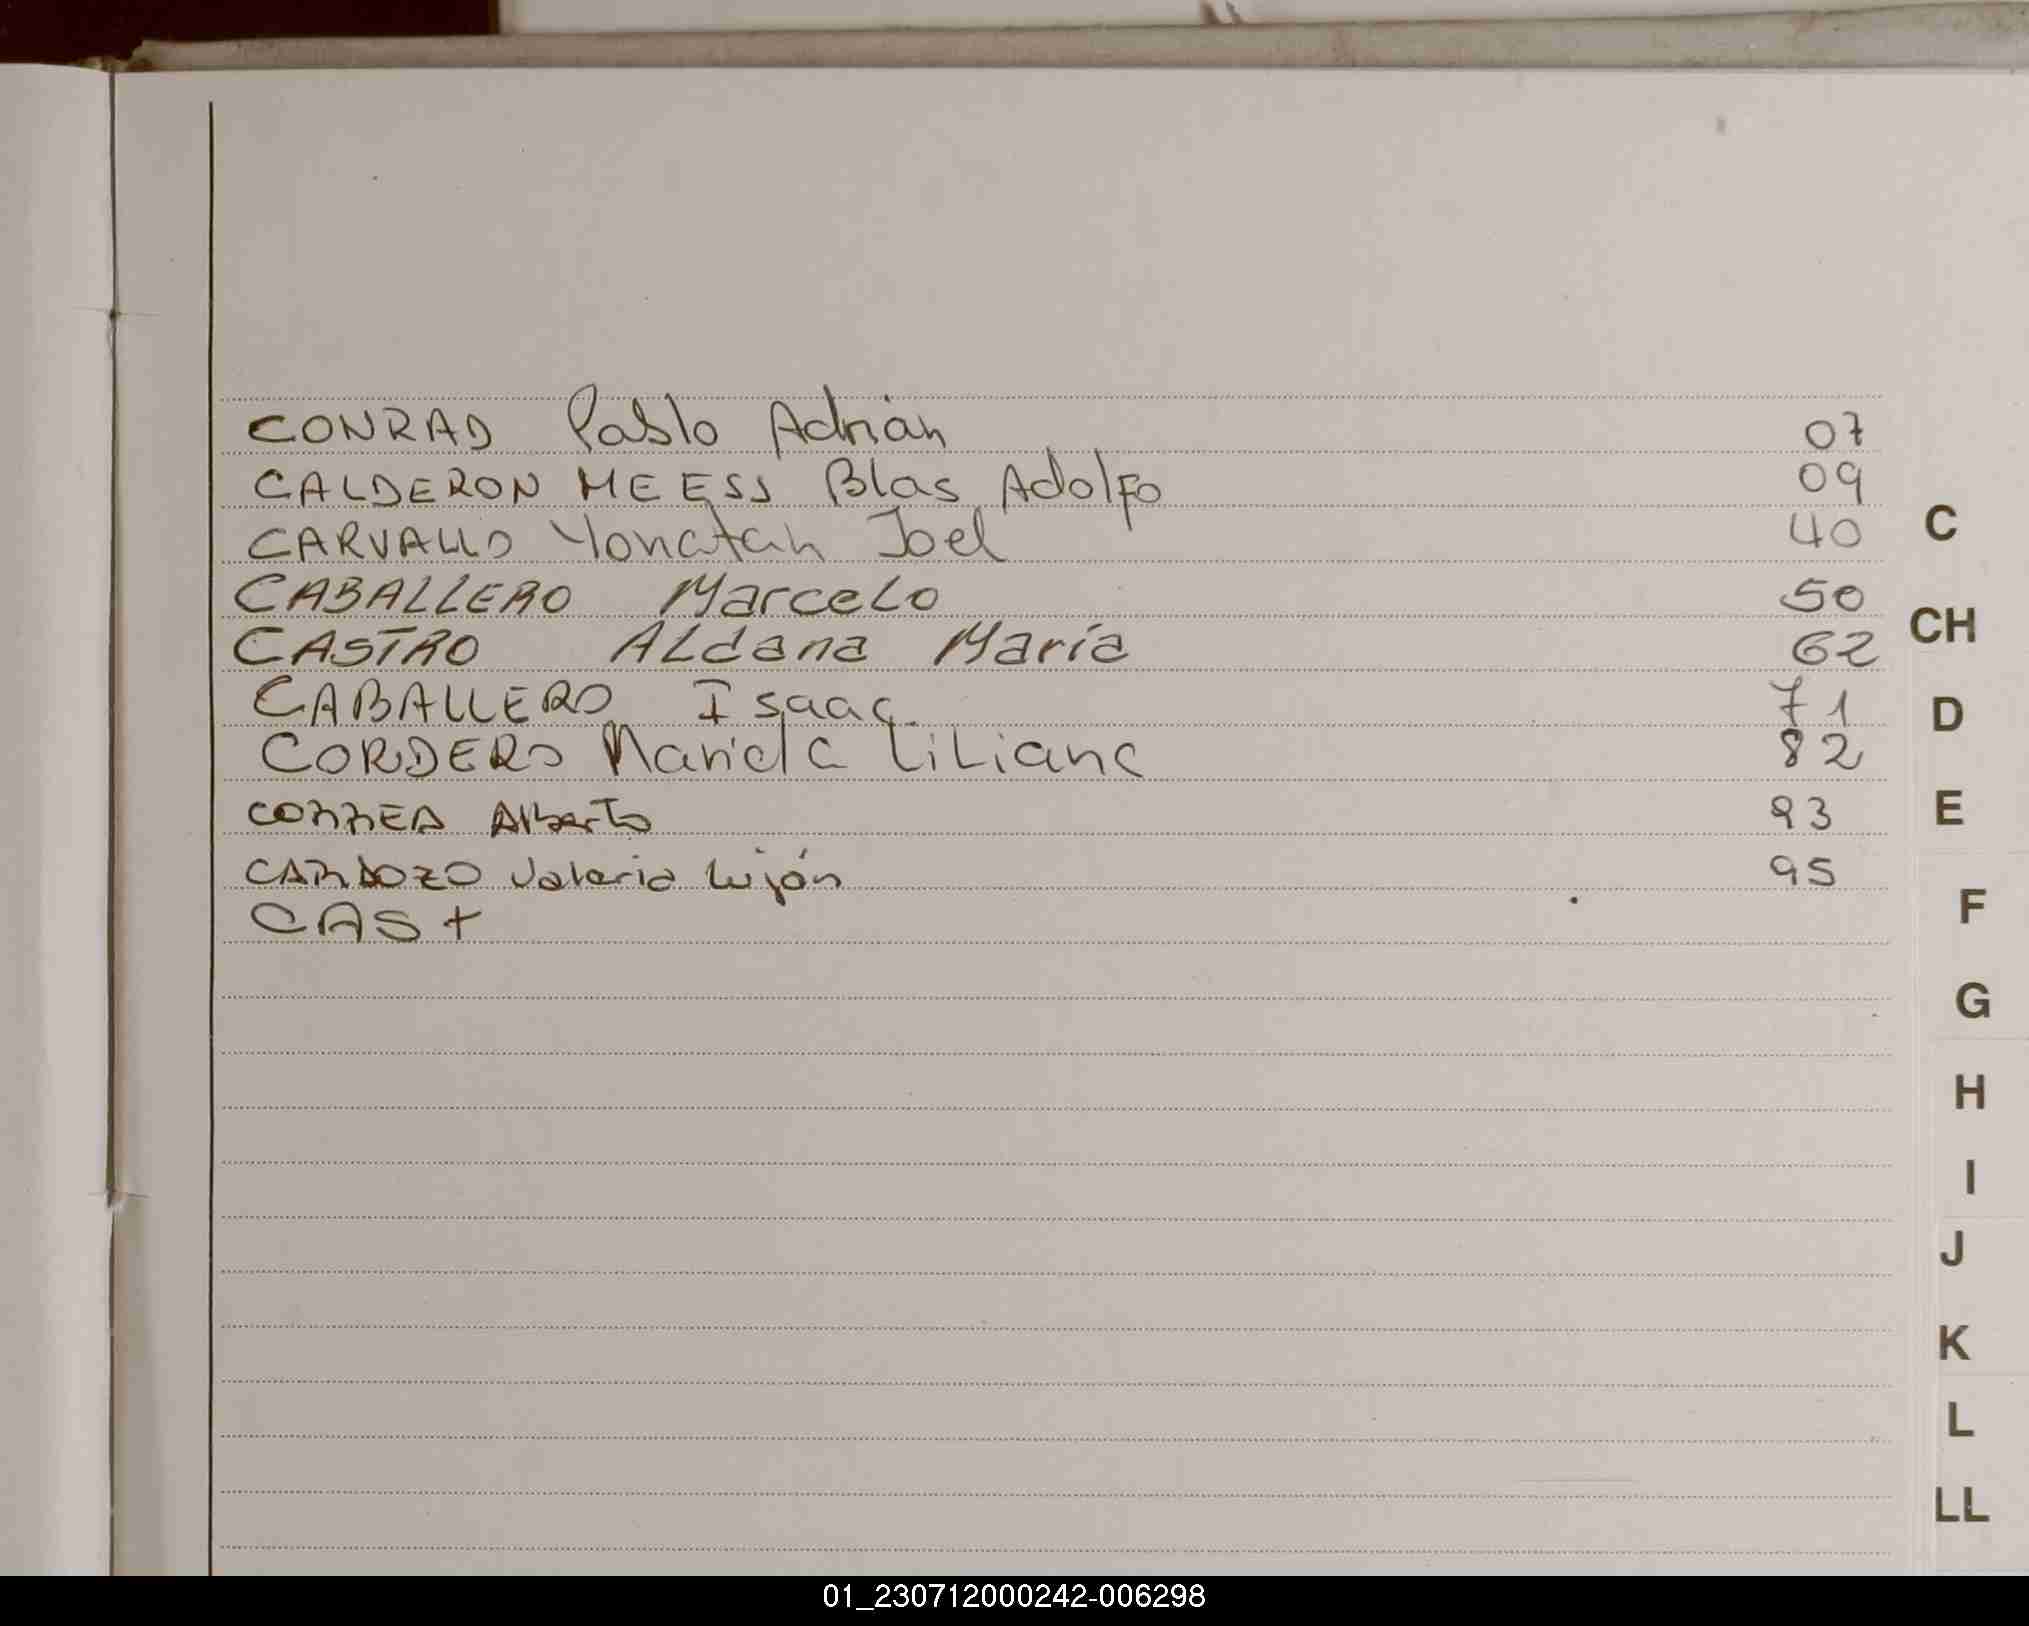 CONRAD Pablo Adrián 07
CALDERON MEESS Blas Adolfo 09
CARVALLO Yonatan Joel 40
CABALLERO Marcelo 50
CASTRO Aldana María 62
CABALLERO Isaac. 71
CORDERO Mariela Liliana 82
CORREA Alberto 93
CARDOZO Valeria Luján 95
CAS+
C
CH
D
E
F
G
H
I
J
K
L
LL
01_230712000242-006298